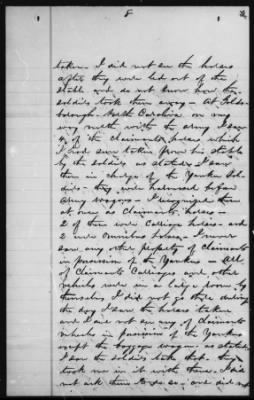 8
taken - I did not see the horses
after they were led out of the
stable and do not know how the
soldiers took them away - At Golds-
borough - North Carolina on my
way north with the army I saw
4 of the claimants horses which
I had seen taken from his stable
by the soldiers as stated. I saw
them in charge of the Yankee Sol-
diers - they were harnessed before
army wagons - I recognized them
at once as claimants horses -
2 of them were Carriage horses and
2 were omnibus horses. I never
saw any other property of claimants
in possession of the Yankees - All
of Claimants Carriages and other
vehicles were in a large room by
themselves I did not go there during
the day I saw the horses taken
and I did not see any of Claimants
vehicles in possession of the Yankees
except the baggage wagon as stated
I saw the soldiers take that. They
took me in it with them. I did
not ask them to do so - and did not